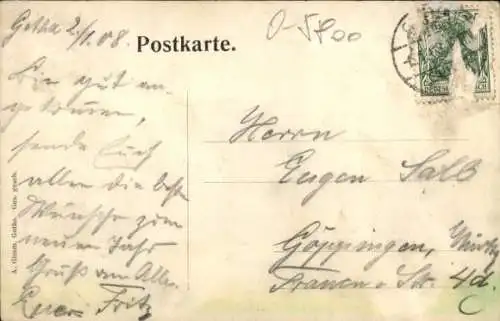 Gotha 2/1.08.
O-5700
Postkarte.
Bin gut an-
gekommen,
sende Euch
allen die besten
Wünsche zum
neuen Jahr
Gruß an Alle.
Euer Fritz
Herrn
Eugen Salb
Göppingen,
Frauen-Str. 4d.
A. Gotha. Ges. gesch.